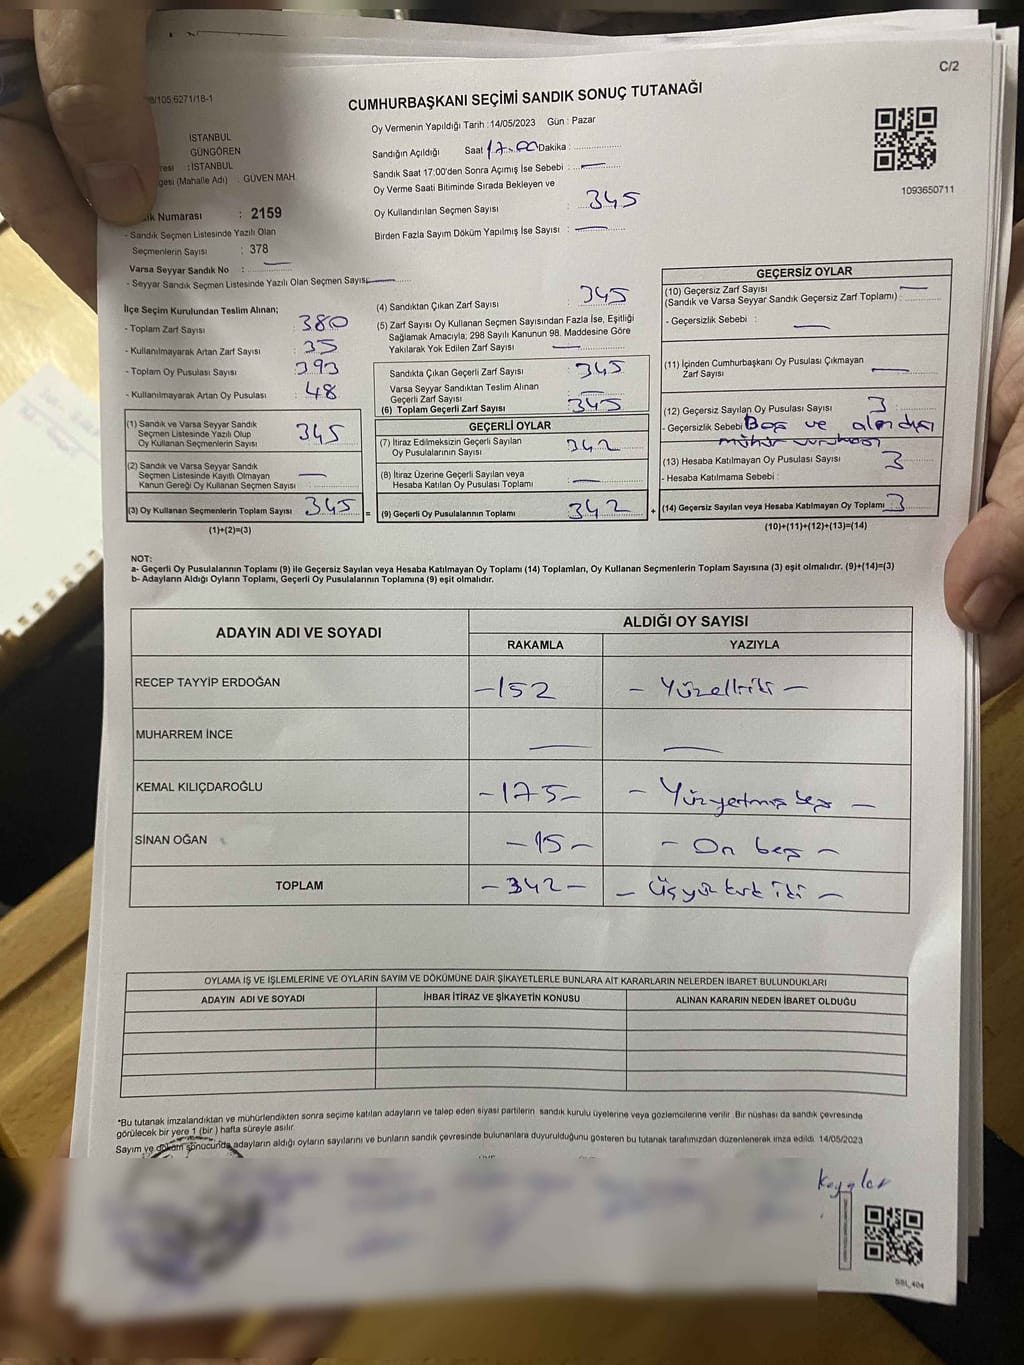 C/2
/105:6271/18-1
CUMHURBAŞKANI SEÇİMİ SANDIK SONUÇ TUTANAĞI
Oy Vermenin Yapıldığı Tarih : 14/05/2023 Gün : Pazar
İSTANBUL
GÜNGÖREN
: İSTANBUL
(Mahalle Adı) : GÜVEN MAH.
Numarası : 2159
- Sandık Seçmen Listesinde Yazılı Olan
Seçmenlerin Sayısı : 378
Varsa Seyyar Sandık No :
- Seyyar Sandık Seçmen Listesinde Yazılı Olan Seçmen Sayısı:
Sandığın Açıldığı Saat 17.00 Dakika :
Sandık Saat 17:00'den Sonra Açımış İse Sebebi :
Oy Verme Saati Bitiminde Sırada Bekleyen ve
Oy Kullandırılan Seçmen Sayısı : 345
Birden Fazla Sayım Döküm Yapılmış İse Sayısı :
1093650711
İlçe Seçim Kurulundan Teslim Alınan;
- Toplam Zarf Sayısı : 380
- Kullanılmayarak Artan Zarf Sayısı : 35
- Toplam Oy Pusulası Sayısı : 393
- Kullanılmayarak Artan Oy Pusulası : 48
(1) Sandık ve Varsa Seyyar Sandık
Seçmen Listesinde Yazılı Olup
Oy Kullanan Seçmenlerin Sayısı : 345
(2) Sandık ve Varsa Seyyar Sandık
Seçmen Listesinde Kayıtlı Olmayan
Kanun Gereği Oy Kullanan Seçmen Sayısı :
(3) Oy Kullanan Seçmenlerin Toplam Sayısı : 345 =
(1)+(2)=(3)
(4) Sandıktan Çıkan Zarf Sayısı : 345
(5) Zarf Sayısı Oy Kullanan Seçmen Sayısından Fazla İse, Eşitliği
Sağlamak Amacıyla; 298 Sayılı Kanunun 98. Maddesine Göre
Yakılarak Yok Edilen Zarf Sayısı :
Sandıkta Çıkan Geçerli Zarf Sayısı : 345
Varsa Seyyar Sandıktan Teslim Alınan
Geçerli Zarf Sayısı :
(6) Toplam Geçerli Zarf Sayısı : 345
GEÇERLİ OYLAR
(7) İtiraz Edilmeksizin Geçerli Sayılan
Oy Pusulalarının Sayısı : 342
(8) İtiraz Üzerine Geçerli Sayılan veya
Hesaba Katılan Oy Pusulası Toplamı :
(9) Geçerli Oy Pusulalarının Toplamı : 342 +
GEÇERSİZ OYLAR
(10) Geçersiz Zarf Sayısı
(Sandık ve Varsa Seyyar Sandık Geçersiz Zarf Toplamı) :
- Geçersizlik Sebebi :
(11) İçinden Cumhurbaşkanı Oy Pusulası Çıkmayan
Zarf Sayısı :
(12) Geçersiz Sayılan Oy Pusulası Sayısı : 3
- Geçersizlik Sebebi : Boş ve alan dışı
mühür vurulması
(13) Hesaba Katılmayan Oy Pusulası Sayısı : 3
- Hesaba Katılmama Sebebi :
(14) Geçersiz Sayılan veya Hesaba Katılmayan Oy Toplamı : 3
(10)+(11)+(12)+(13)=(14)
NOT:
a- Geçerli Oy Pusulalarının Toplamı (9) ile Geçersiz Sayılan veya Hesaba Katılmayan Oy Toplamı (14) Toplamları, Oy Kullanan Seçmenlerin Toplam Sayısına (3) eşit olmalıdır. (9)+(14)=(3)
b- Adayların Aldığı Oyların Toplamı, Geçerli Oy Pusulalarının Toplamına (9) eşit olmalıdır.
ADAYIN ADI VE SOYADI
ALDIĞI OY SAYISI
RAKAMLA YAZIYLA
RECEP TAYYİP ERDOĞAN -152 - Yüzelliiki -
MUHARREM İNCE — —
KEMAL KILIÇDAROĞLU -175- - Yüzyetmiş beş -
SİNAN OĞAN -15- - On beş -
TOPLAM -342- - Üçyüz kırk iki -
OYLAMA İŞ VE İŞLEMLERİNE VE OYLARIN SAYIM VE DÖKÜMÜNE DAİR ŞİKAYETLERLE BUNLARA AİT KARARLARIN NELERDEN İBARET BULUNDUKLARI
ADAYIN ADI VE SOYADI İHBAR İTİRAZ VE ŞİKAYETİN KONUSU ALINAN KARARIN NEDEN İBARET OLDUĞU
*Bu tutanak imzalandıktan ve mühürlendikten sonra seçime katılan adayların ve talep eden siyasi partilerin sandık kurulu üyelerine veya gözlemcilerine verilir. Bir nüshası da sandık çevresinde
görülecek bir yere 1 (bir ) hafta süreyle asılır.
Sayım ve döküm sonucunda adayların aldığı oyların sayılarını ve bunların sandık çevresinde bulunanlara duyurulduğunu gösteren bu tutanak tarafımızdan düzenlenerek imza edildi. 14/05/2023
SSI_404